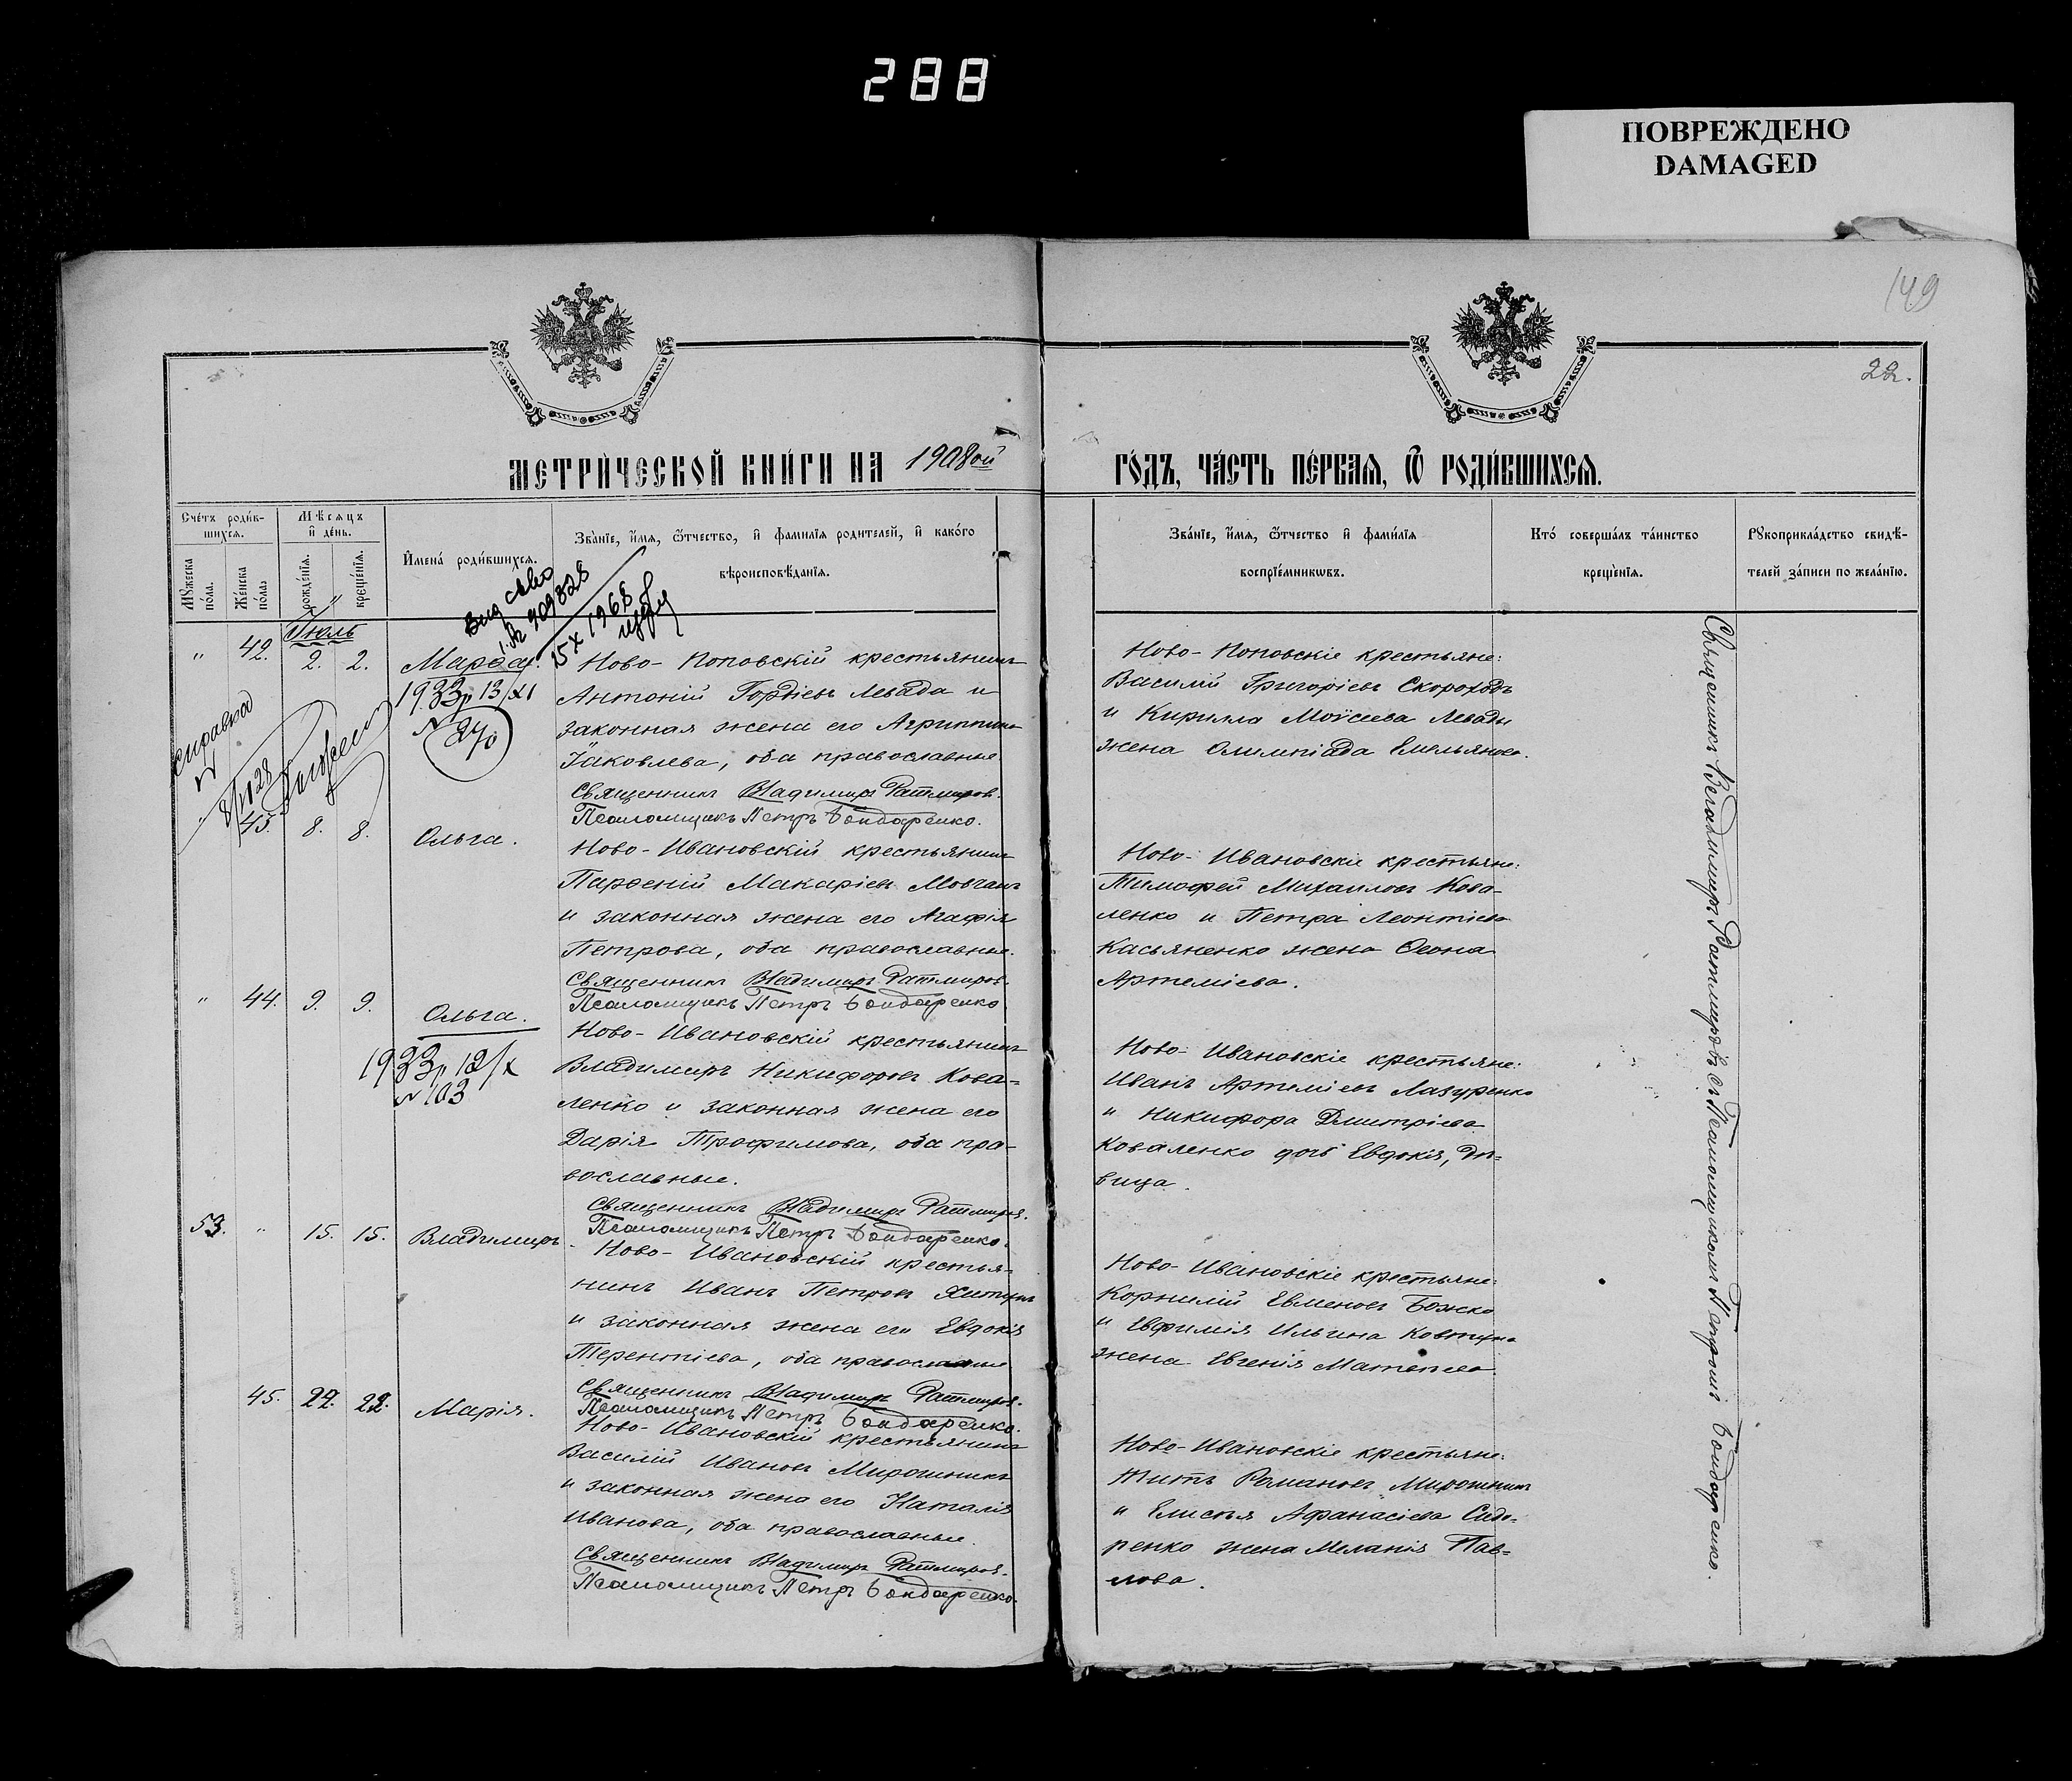 288
ПОВРЕЖДЕНО
DAMAGED
149
22.
МЕТРИ́ЧЕСКОЙ КНИ́ГИ НА 1908ой
ГО́ДЪ, ЧА́СТЬ ПЕ́РВАѦ, Ѿ РОДИ́ВШИХСѦ.
Сче́тъ роди́в-
шихся.
Мѣсяцъ
и҆ де́нь.
Мꙋжеска
по́ла.
Же́нска
по́ла.
рожде́нїя.
креще́нїя.
И҆мена̀ роди́вшихся.
Зва́нїе, и҆́мя, ѻ҆́тчество, и҆ фамилїя родителей, и҆ како́го
вѣроисповѣ́данїя.
Зва́нїе, и҆́мя, ѻ҆́тчество и҆ фами́лїя
воспрїе́мникѡвъ.
Кто́ соверша́лъ та́инство
креще́нїя.
Рꙋкоприкла́дство свидѣ́-
телей за́писи по жела́нїю.
Іюль
" 42. 2. 2. Марѳа.
1933р 13/XI
N 270
Справка
N
Ново-Поповскій крестьянинъ
Антоній Гордіевъ Левада и
законная жена его Агриппина
Іаковлева, оба православные
Священникъ Владимиръ Ратмировъ.
Псаломщикъ Петръ Бондаренко.
Ново-Поповскіе крестьяне:
Василій Григоріевъ Скороходъ
и Кирилла Моѵсеева Левады
жена Олимпіада Емельянова.
" 43. 8. 8. Ольга.
Ново-Ивановскій крестьянинъ
Парѳеній Макаріевъ Мовчанъ
и законная жена его Агафія
Петрова, оба православные.
Священникъ Владимиръ Ратмировъ.
Псаломщикъ Петръ Бондаренко
Ново-Ивановскіе крестьяне:
Тимофей Михаиловъ Кова-
ленко и Петра Леонтіева
Касьяненко жена Ѳеона
Артеміева.
" 44. 9. 9. Ольга.
1933р 12/X
N 103
Ново-Ивановскій крестьянинъ
Владимиръ Никифоровъ Кова-
ленко и законная жена его
Дарія Трофимова, оба пра-
вославные.
Священникъ Владимиръ Ратмировъ.
Псаломщикъ Петръ Бондаренко.
Ново-Ивановскіе крестьяне:
Иванъ Артеміевъ Лазуренко
и Никифора Дмитріева
Коваленко дочь Евдокія, дѣ-
вица.
53. " 15. 15. Владимиръ
Ново-Ивановскій крестья-
нинъ Иванъ Петровъ
и законная жена его Евдокія
Терентіева, оба православные
Священникъ Владимиръ Ратмировъ.
Псаломщикъ Петръ Бондаренко.
Ново-Ивановскіе крестьяне:
Корнилій Евменовъ Божко
и Евфимія Ильина Ковтуна
жена Евгенія Матѳеева
45. 22. 22. Марія.
Ново-Ивановскій крестьянинъ
Василій Ивановъ Мирошникъ
и законная жена его Наталія
Иванова, оба православные.
Священникъ Владимиръ Ратмировъ.
Псаломщикъ Петръ Бондаренко.
Ново-Ивановскіе крестьяне:
Титъ Романовъ Мирошникъ
и Елисея Афанасіева Сидо-
ренко жена Меланія Пав-
лова.
Священникъ Владимиръ Ратмировъ съ Псаломщикомъ Петромъ Бондаренко.